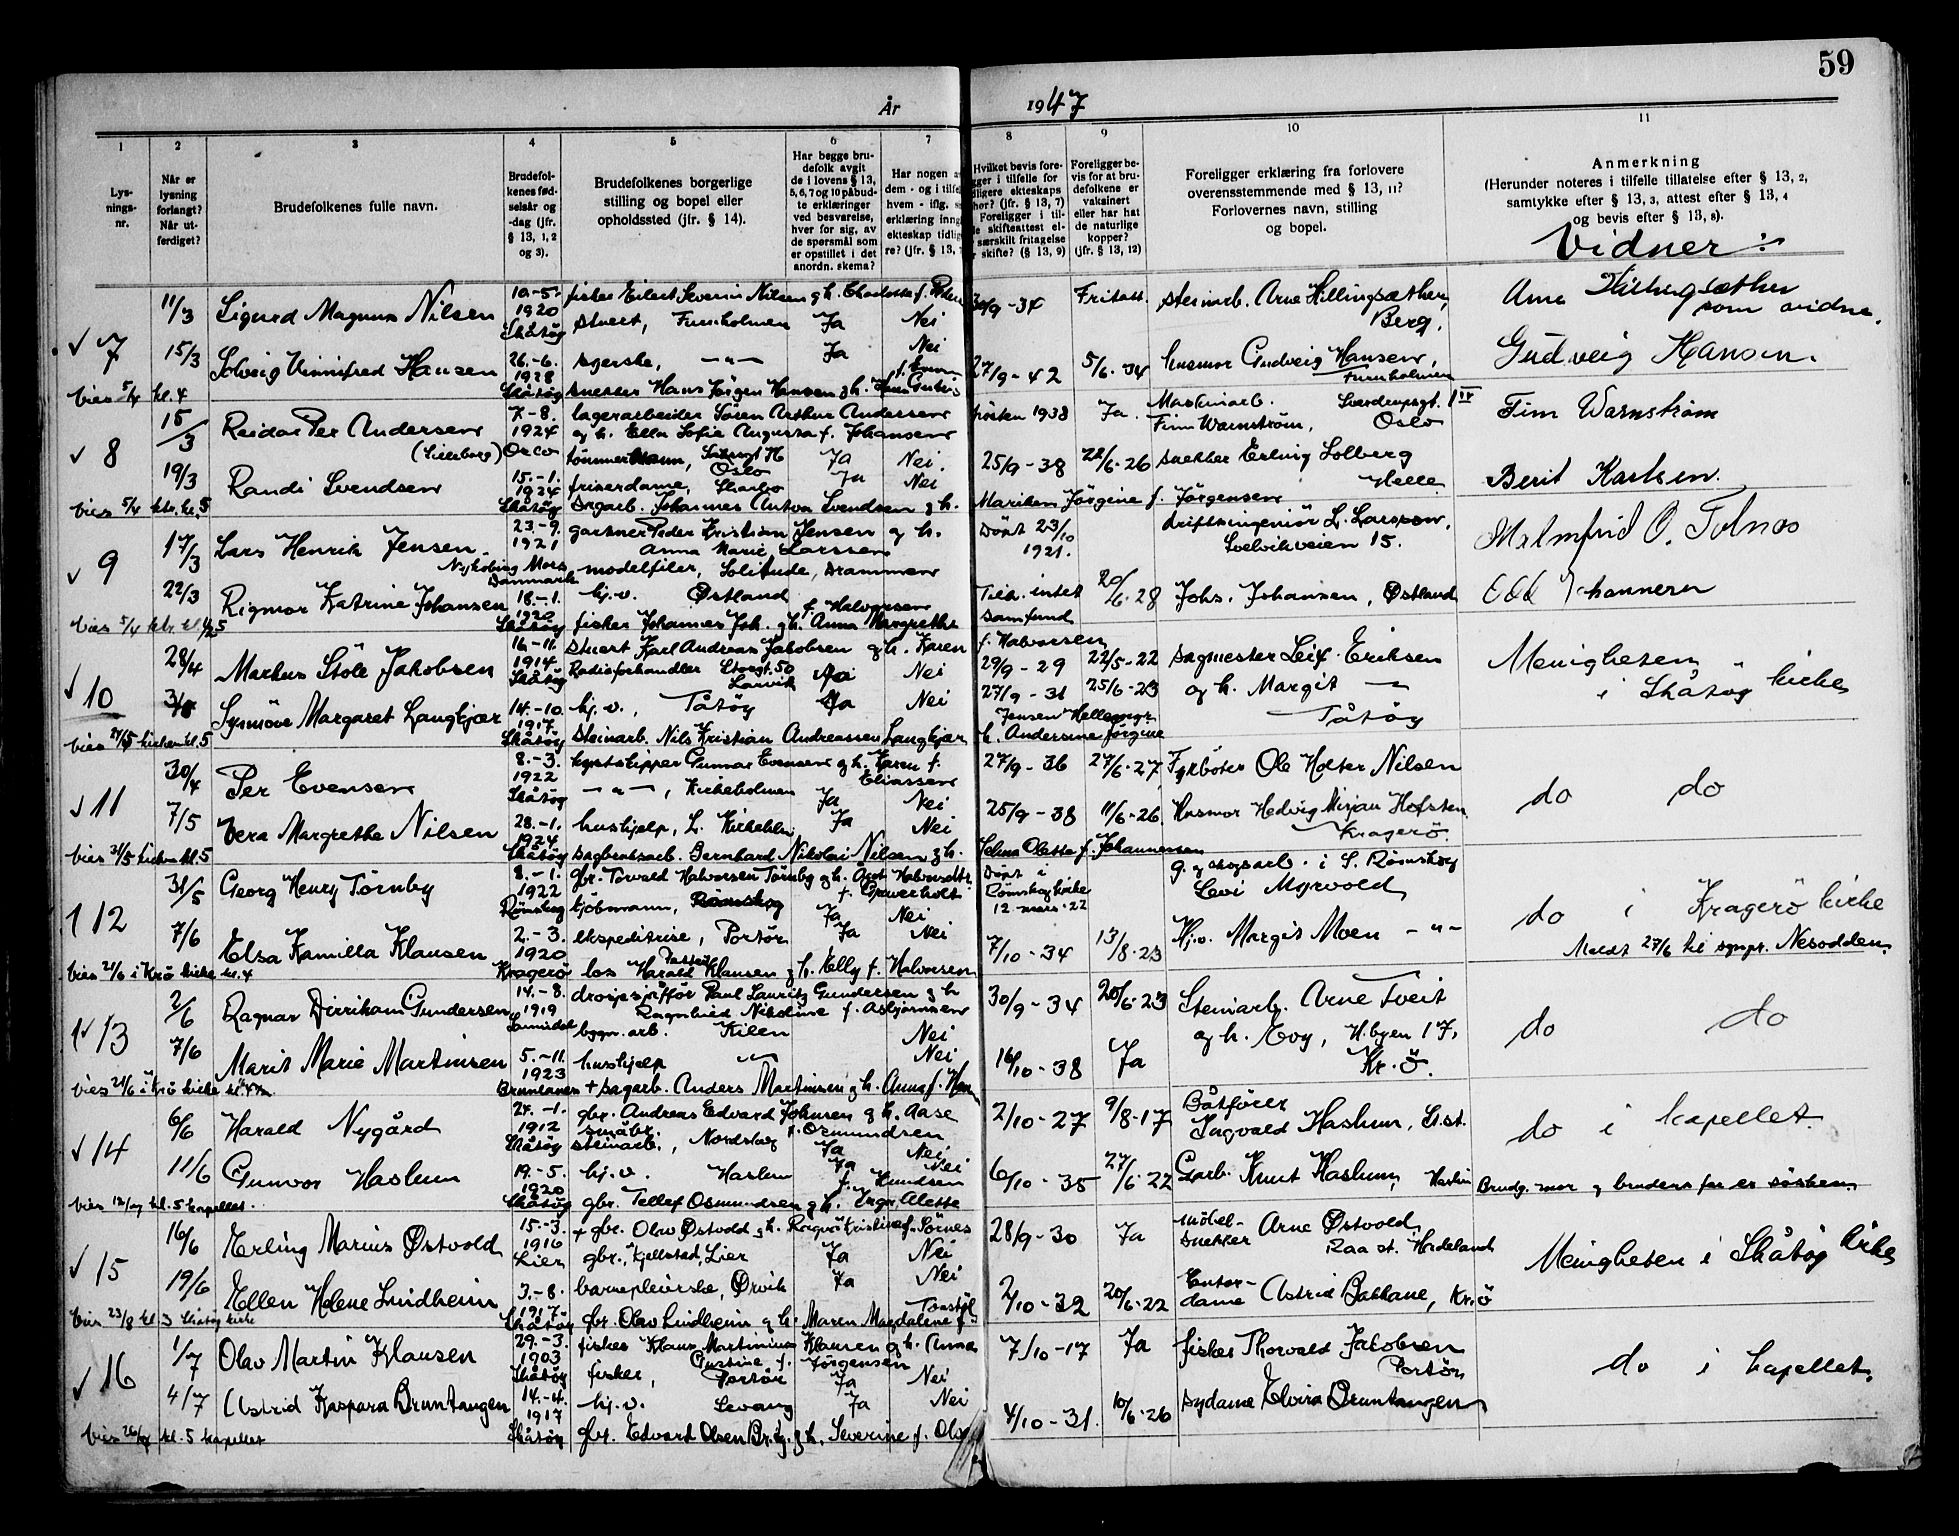 59
År 1947
1
2
3
4
5
6
7
8
9
10
11
Lys-
nings-
nr.
Når er
lysning
forlangt?
Når ut-
ferdiget?
Brudefolkenes fulle navn.
Brudefol-
kenes fød-
selsår og
-dag (jfr.
§ 13, 1, 2
og 3).
Brudefolkenes borgerlige
stilling og bopel eller
opholdssted (jfr. § 14).
Har begge bru-
defolk avgit
de i lovens § 13,
5, 6, 7 og 10 påbud-
te erklæringer
ved besvarelse,
hver for sig, av
de spørsmål som
er opstillet i det
anordn. skema?
Har nogen
dem - og i
hvem - iflg.
erklæring
ekteskap
re? (jfr. § 13,
Hvilket bevis fore-
for
ekteskaps
(jfr. § 13, 7)
Foreligger i til-
skifteattest el-
særskilt fritagelse
skifte? (§ 13, 9)
Foreligger be-
vis for at bru-
defolkene er
vaksinert
eller har hat
de naturlige
kopper?
(jfr. § 13, 12)
Foreligger erklæring fra forlovere
overensstemmende med § 13, 11?
Forlovernes navn, stilling
og bopel.
Anmerkning
(Herunder noteres i tilfelle tillatelse efter § 13, 2,
samtykke efter § 13, 3, attest efter § 13, 4
og bevis efter § 13, 8).
Vidner :
7
11/3 Sigurd Magnus Nilsen 10.-5. 1920 Skåtøy
fisker Eilert Severin Nilsen g h. Charlotte f.
stuert, Furuholmen Ja Nei
30/9-34 Fritatt. steinarb. Arne Hillingsæther, Berg.
Arne Hillingsæther som vidne.
15/3 Solveig Vinnifred Hansen 26.-6. 1928 Skåtøy
Ja Nei
27/9-42 5/6-34 husmor Gudveig Hansen, Furuholmen
Gudveig Hansen.
snekker Hans Jørgen Hansen g h.
vies 5/4 kl. 4
8
15/3 Reidar Per Andersen 7-8. 1924 Oslo
lagerarbeider Søren Arthur Andersen
og h. Ella Sofie Augusta f. Johansen
Oslo Ja Nei.
høsten 1938 Ja. Maskinarb. Finn Warnstrøm, Oslo
Finn Warnstrøm
19/3 Randi Svendsen 15.-1. 1924 Skåtøy
friserdame, Ja Nei
25/9-38 22/6-26 snekker Erling Solberg Helle
Berit Karlsen.
sagarb. Johannes Anton Svendsen g h. Mariken Jørgine f. Jørgensen
vies 5/4 kl. 5
9
17/3 Lars Henrik Jensen. 23-9. 1921 Nykøbing Mors Danmark
gartner Peder Kristian Jensen og h.
Anna Marie Larssen
modelfiler, Solitude, Drammen
Døpt 23/10 1921. driftsingeniør L. Larsson, Svelvikveien 15.
Malmfrid O. Tolnes
22/3 Rigmor Katrine Johansen 18.-1. 1920 Skåtøy
hj.v. Østland
fisker Johannes Joh. g h. Anna Margrethe f. Halvorsen
Tilh. intet samfund 20/6-28 Johs. Johansen, Østland
Odd Johannesen
vies 5/4
10
28/4 Markus Ståle Jakobsen 16-11. 1914. Skåtøy
stuert Karl Andreas Jakobsen g h. Karen f. Halvorsen
Radioforhandler Storgt. 50 Larvik Ja Nei
29/9-29 22/5-22 sagmester Leif Eriksen
og h. Margit
Tåtøy
Menigheten i Skåtøy kirke
Synnøve Margaret Langkjær 14.-10. 1917. Skåtøy
hj.v., Tåtøy Ja Nei
27/9-31 25/6-23
steinarb. Nils Kristian Andreassen Langkjær h. Andersine Jørgine
vies 27/5 kirken kl. 5
11
30/4 Per Evensen 8.-3. 1922 Skåtøy
kystskipper Gunnar Evensen g h. Karen f. Eliassen
- " -, Kirkeholmen Ja Nei
27/9-36 27/6-27 Fyrbøter Ole Holter Nilsen
do do
7/5 Vera Margrethe Nilsen 28.-1. 1924. Skåtøy
hushjelp, L. Kirkehln. Ja Nei
25/9-38 11/6-26 Husmor Hedvig Mirjan Hofsten Kragerø.
sagbruksarb. Bernhard Nikolai Nilsen g h. Selma Olette f. Johannessen
vies 31/5 kirken kl. 5
12
31/5 Georg Henry Tørnby 8.-1. 1922 Rømskog
gbr. Torvald Halvorsen Tørnby g h.
kjøbmann, Rømskog Ja Nei
Døpt i Rømskog kirke 12. mars. 22
g. og skogsarb. i S. Rømskog
Levi Myrvold
do i Kragerø kirke
7/6 Elsa Kamilla Klausen 2.-3. 1920 Kragerø
ekspeditrise, Portør Ja Nei
los Harald Klausen g h. Elly f. Halvorsen
7/10-34 13/8-23 Hj.v. Margit Moen - " -
Meldt 27/6 til sognpr. Nesodden.
vies 21/6 i Krø kirke kl. 4
13
2/6 Ragnar Dirrikam Gundersen 14.-8. 1919 Sannidal
drosjesjåffør Paul Lauritz Gundersen g h
Ragnhild Nikoline f. Asbjørnsen
bygn. arb. Kilen Nei
30/9-34 20/6-23 Steinarb. Arne Tveit
og h. Evy, H.byen 17, Kr.ø.
do do
7/6 Marit Marie Martinsen 5.-11. 1923 Brunlanes
hushjelp Nei
16/10-38 Ja
+ sagarb. Anders Martinsen g h. Anna f.
vies 21/6 i Krø kirke
14
6/6 Harald Nygård 24.-1. 1912 Skåtøy
gbr. Andreas Edvard Johnsen g h. Aase f. Osmundsen
steinarb., Ja Nei
2/10-27 9/8-17 Båtfører
Ingvald Haslum,
do i kapellet.
11/6 Gunvor Haslum 19.-5. 1920 Skåtøy
hj.v. Haslum Ja Nei
gbr. Tellef Osmundsen g h. Inga Alette f. Knudsen
6/10-35 27/6-22 Garb. Knut Haslum, Haslum
Brudg. mor og brudens far er søsken
kl. 5 kapellet.
15
16/6 Erling Marius Østvold 15.-3. 1916 Lier
+ gbr. Olav Østvold g h. Ragna Kristine f. Sørnes
gbr., Kjellstad, Lier Ja Nei
28/9-30 Ja møbel-
snekker Arne Østvold,
Roa st. Hadeland
Menigheten i Skåtøy kirke
19/6 Ellen Helene Lindheim 3.-8. 1917. Skåtøy
barnepleierske, Ørvik Ja Nei
gbr. Olav Lindheim g h. Maren Magdalene f.
2/10-32 20/6-22 Astrid Bakkane, Kr.ø
vies 23/8 kl. 3 Skåtøy kirke
16
1/7 Olav Martin Klausen 29.-3. 1903 Skåtøy
fisker Klaus Martinius Klausen g h. Anna
Gustine f. Jørgensen
fisker, Portør Ja Nei
7/10-17 Ja fisker Thorvald Jakobsen
Portør
do i kapellet.
4/7 Astrid Kaspara Bruntangen 14.-4. 1917 Skåtøy
hj.v. Levang Ja Nei
gbr. Edvard Olsen g h. Severine f.
4/10-31. 10/6-26 sydame Elvira Bruntangen
kl. 5 kapellet